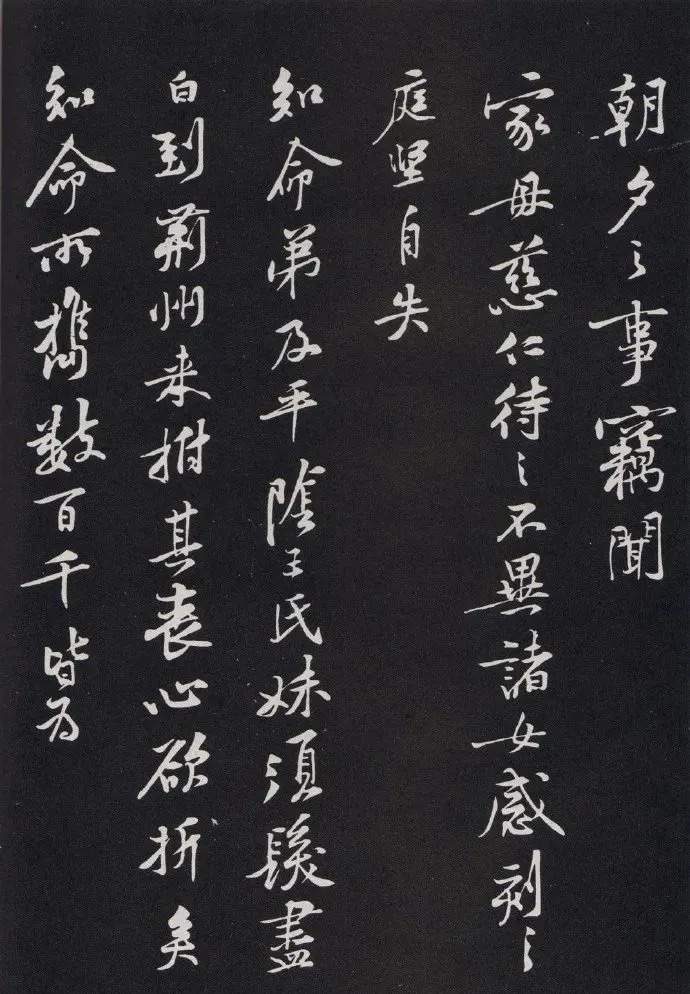 朝夕之事竊聞
家母慈仁待之不異諸女感刻之
庭堅自失
知命弟及平陰王氏妹須髮盡
白到荊州来拊其喪心欲折矣
知命所携數百千皆为